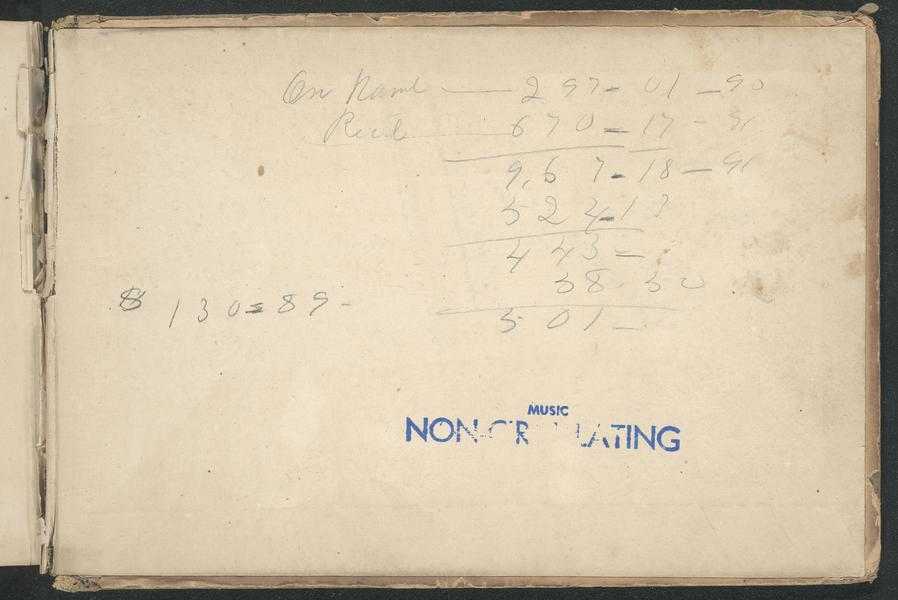 On Hand — 297 - 01 - 90
Recd — 670 = 17 - 91
9,67 - 18 - 91
524 - 13
443 -
58.50
$ 130 = 89 -
501 -
MUSIC
NON-CIRCULATING